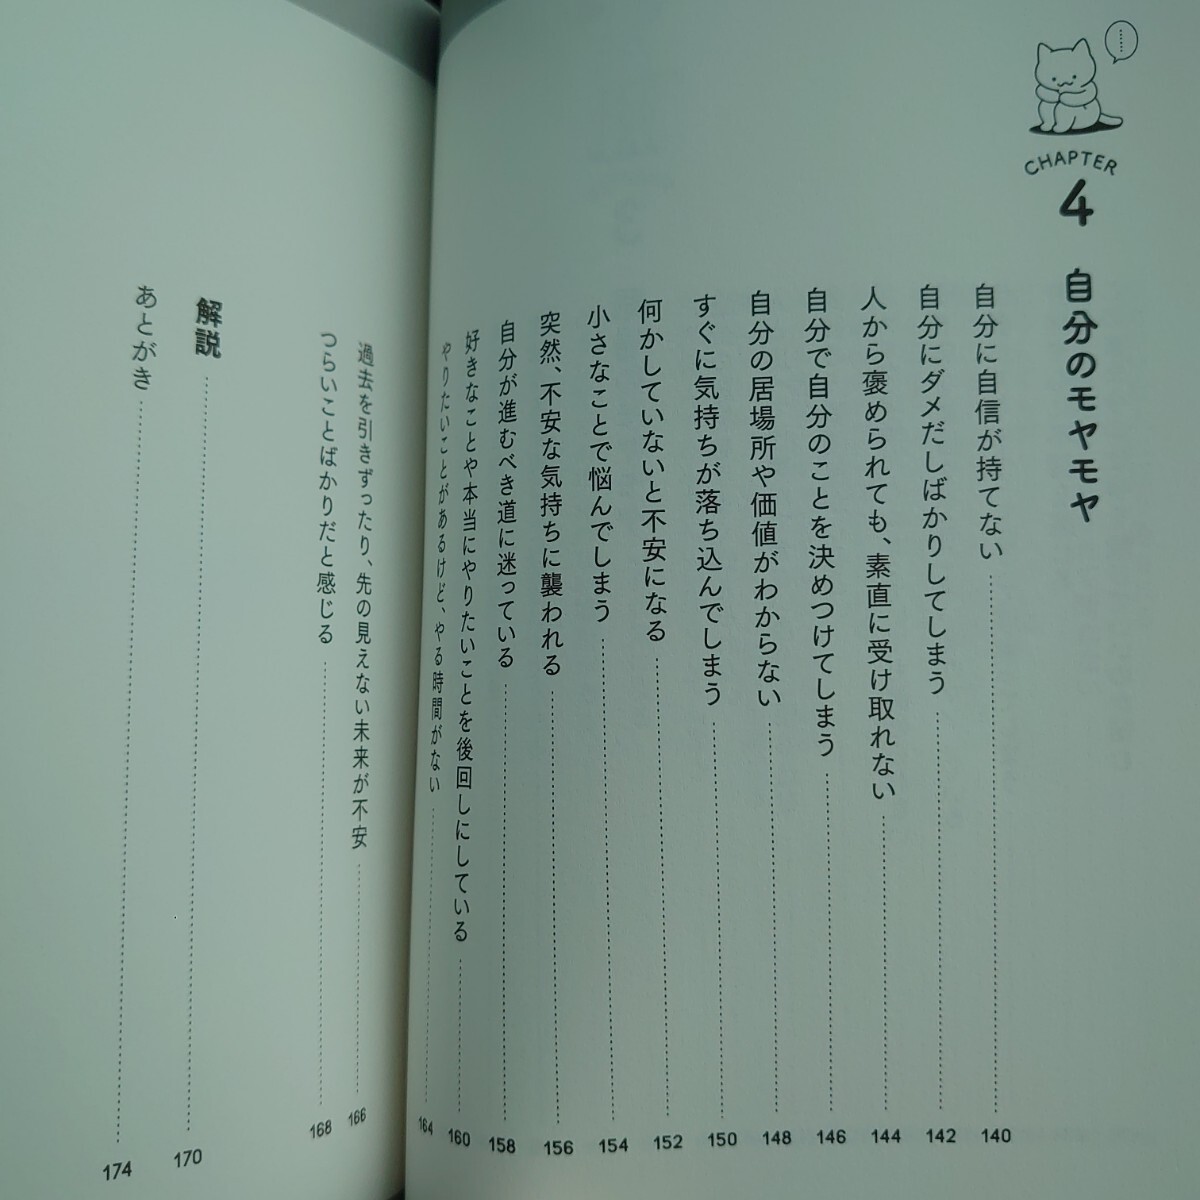 CHAPTER
4
自分のモヤモヤ
自分に自信が持てない 140
自分にダメだしばかりしてしまう 142
人から褒められても、素直に受け取れない 144
自分で自分のことを決めつけてしまう 146
自分の居場所や価値がわからない 148
すぐに気持ちが落ち込んでしまう 150
何かしていないと不安になる 152
小さなことで悩んでしまう 154
突然、不安な気持ちに襲われる 156
自分が進むべき道に迷っている 158
好きなことや本当にやりたいことを後回しにしている 160
やりたいことがあるけど、やる時間がない 164
過去を引きずったり、先の見えない未来が不安 166
つらいことばかりだと感じる 168
解説 170
あとがき 174